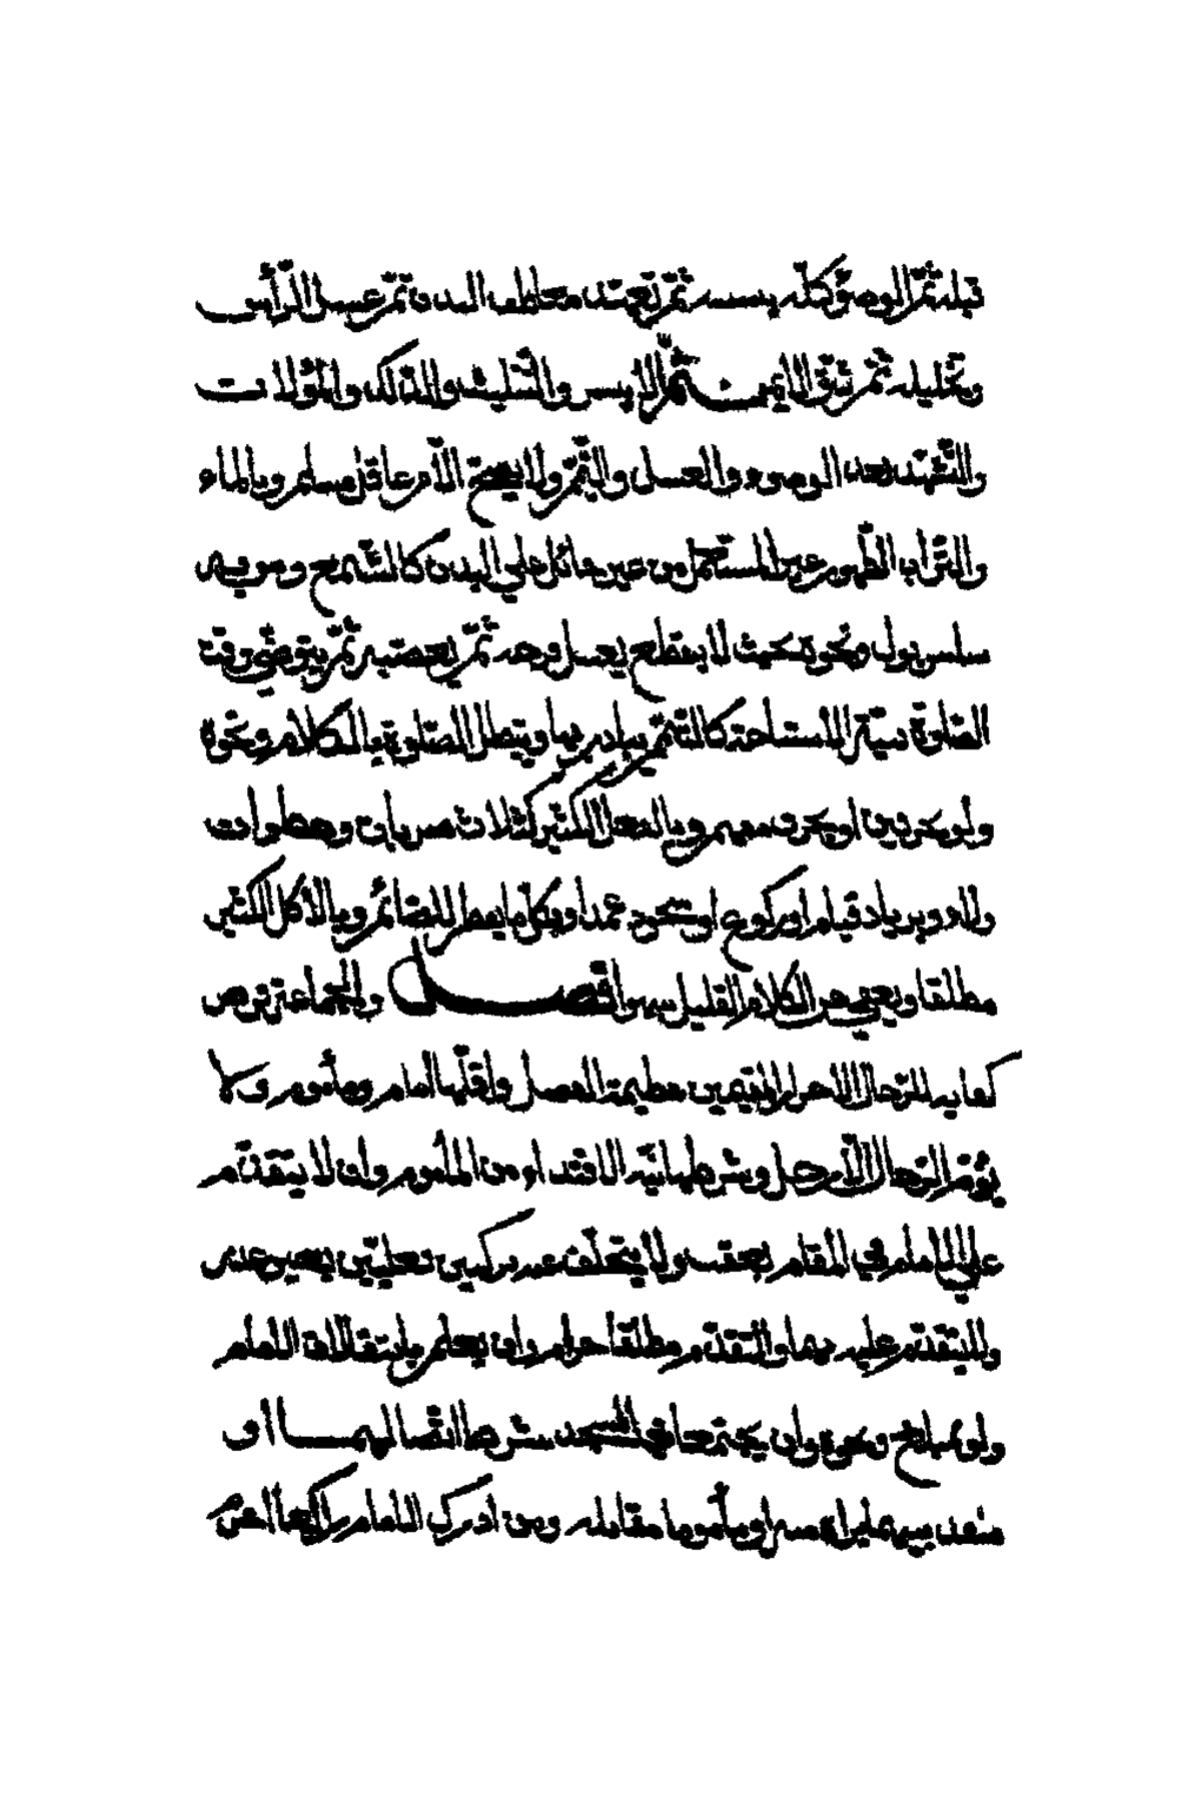 قبله ثمّ الوضوء كلّه بسننه ثمّ تعهّد معاطف البدن ثمّ غسل الرّأس
وتخليله ثمّ شقّ الايمن ثمّ الايسر والتّثليث والدّلك والمؤالات
والتّشهّد بعد الوضوء والغسل والتّيمّم ولا يصحّ الّا من عاقل مسلم وبالماء
والتّراب الطّهور غير المستعمل من غير حائل علي البدن كالشّمع ومن فيه
سلس بول ونحوه بحيث لا ينقطع يغسل فرجه ثمّ يعصبه ثمّ يتوضّي وقت
الصّلوة بنيّة الاستباحة كالتّيمّم ويبادر بها ويبطل الصّلوة بالكلام ونحوه
ولو بحرفين او بحرف مفهم وبالفعل الكثير كثلاث ضربات وخطوات
ولاء وبزياد قيام او ركوع او سجود عمدا وبكلّ ما يفطر الصّائم وبالاكل الكثير
مطلقا ويعفي عن الكلام القليل سهوا فصل والجماعة فرض
كفاية للرّجال الاحرار المقيمين عظيمة الفضل واقلّها امام ومأموم ولا
يؤمّ الرّجال الّا رجل وشرطها نيّة الاقتداء من المأموم وان لا يتقدّم
علي الامام في المقام بعقبه ولا يتخلّف عنه بركنين فعليّين بغير عذر
ولا يتقدّم عليه بهما والتّقدّم مطلقا حرام وان يعلم بانتقالات الامام
ولو بمبلّغ ونحوه وان يجتمعا في المسجد بشرط اتّصالهما او
منفذ بينهما يراه منه او مأموما مقابله ومن ادرك الامام راكعا احرم